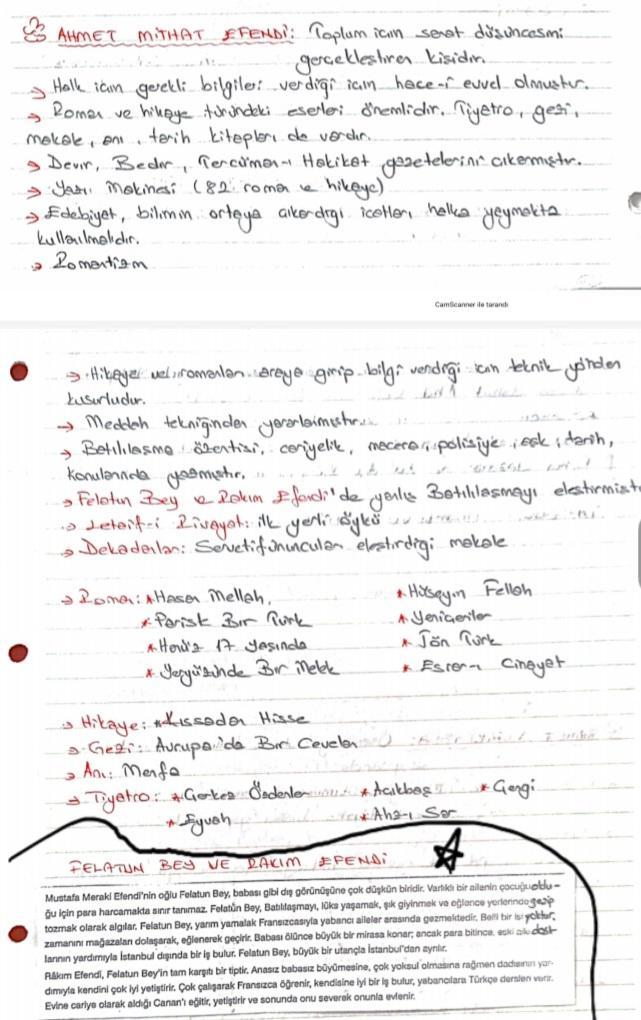 AHMET MİTHAT EFENDİ: Toplum için sanat düşüncesini
gerçekleştiren kişidir.
→ Halk için gerekli bilgileri verdiği için hace-i evvel olmuştur.
→ Roman ve hikaye türündeki eserleri önemlidir. Tiyatro, gezi,
makale, anı, tarih kitapları da vardır.
→ Devir, Bedir, Tercüman-ı Hakikat gazetelerini çıkarmıştır.
→ Yazı Makinesi (82 roman ve hikaye)
→ Edebiyat, bilimin ortaya çıkardığı icatları halka yaymakta
kullanılmalıdır.
→ Romantizm
CamScanner ile tarandı
→ Hikaye ve romanları araya girip bilgi verdiği için teknik yönden
kusurludur.
→ Meddah tekniğinden yararlanmıştır.
→ Batılılaşma özentisi, cariyelik, macera, polisiye, aşk, tarih,
konularında yazmıştır.
→ Felatun Bey ve Rakım Efendi'de yanlış Batılılaşmayı eleştirmişt
→ Letaif-i Rivayat: ilk yerli öykü
→ Dekadanlar: Servetifünuncuları eleştirdiği makale
→ Roman: * Hasan Mellah,
* Hüseyin Fellah
* Pariste Bir Türk
* Yeniçeriler
* Henüz 17 Yaşında
* Jön Türk
* Yeryüzünde Bir Melek
* Esrar-ı Cinayet
→ Hikaye: * Kıssadan Hisse
→ Gezi: Avrupa'da Bir Cevelan
→ Anı: Menfa
→ Tiyatro: * Çerkez Özdenler * Açıkbaş * Çengi
* Eyvah * Ahz-ı Sar
FELATUN BEY VE RAKIM EFENDİ
Mustafa Meraki Efendi'nin oğlu Felatun Bey, babası gibi dış görünüşüne çok düşkün biridir. Varlıklı bir ailenin çocuğu oldu-
ğu için para harcamakta sınır tanımaz. Felatûn Bey, Batılılaşmayı, lüks yaşamak, şık giyinmek ve eğlence yerlerinde gezip
tozmak olarak algılar. Felatun Bey, yarım yamalak Fransızcasıyla yabancı aileler arasında gezmektedir. Belli bir işi yoktur,
zamanını mağazaları dolaşarak, eğlenerek geçirir. Babası ölünce büyük bir mirasa konar; ancak para bitince, eski aile dost-
larının yardımıyla İstanbul dışında bir iş bulur. Felatun Bey, büyük bir utançla İstanbul'dan ayrılır.
Râkım Efendi, Felatun Bey'in tam karşıtı bir tiptir. Anasız babasız büyümesine, çok yoksul olmasına rağmen dadısının yar-
dımıyla kendini çok iyi yetiştirir. Çok çalışarak Fransızca öğrenir, kendisine iyi bir iş bulur, yabancılara Türkçe dersleri verir.
Evine cariye olarak aldığı Canan'ı eğitir, yetiştirir ve sonunda onu severek onunla evlenir.